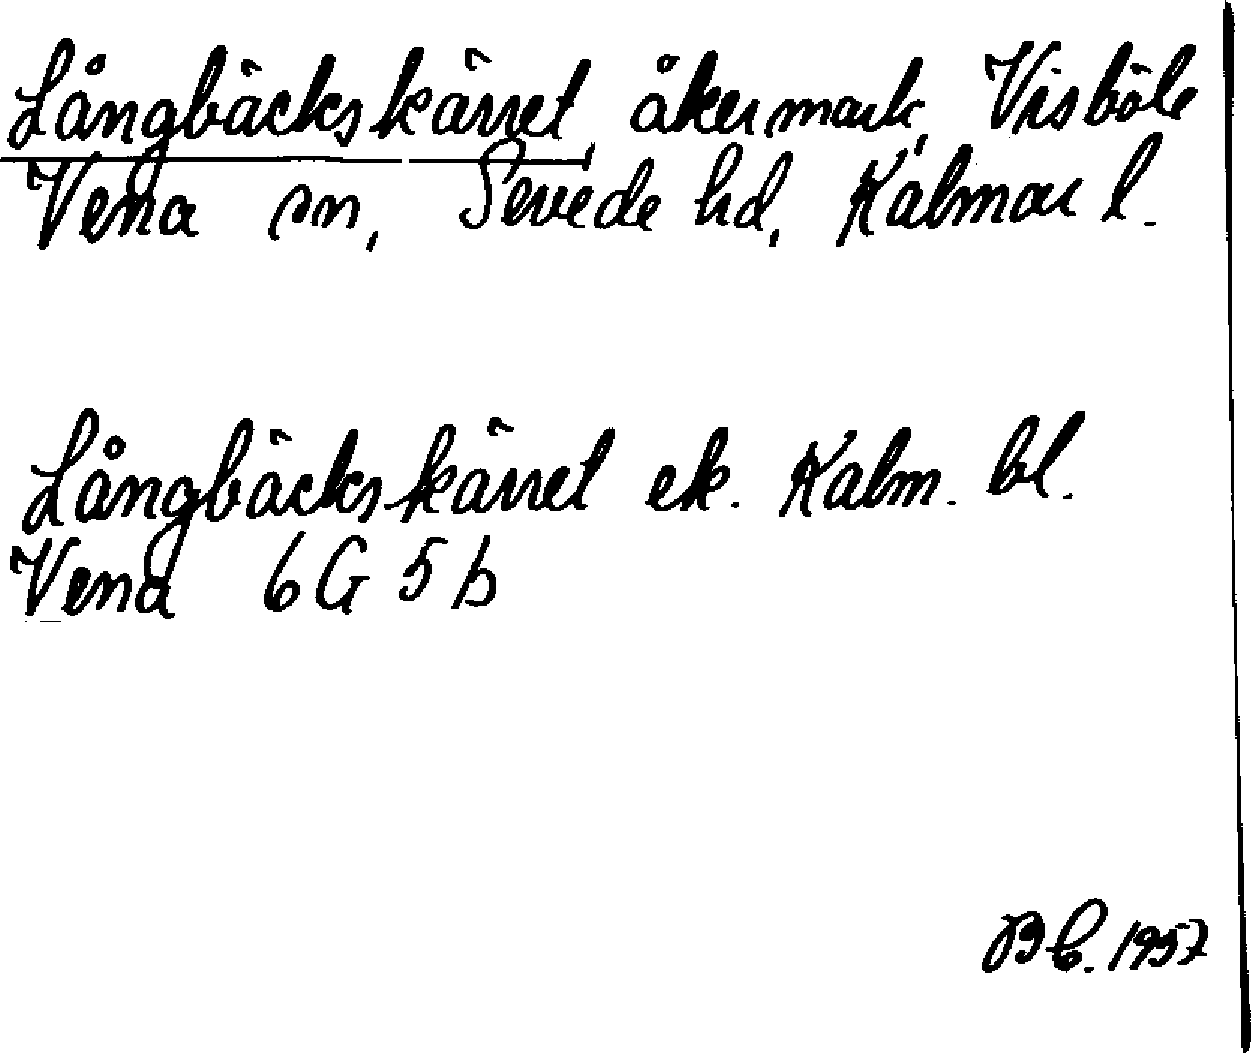 Långbäckskärret, åkermark, Visböle
Vena sn, Sevede hd, Kalmar l.
Långbäckskärret ek. Kalm. bl.
Vena 6G 5b
1957